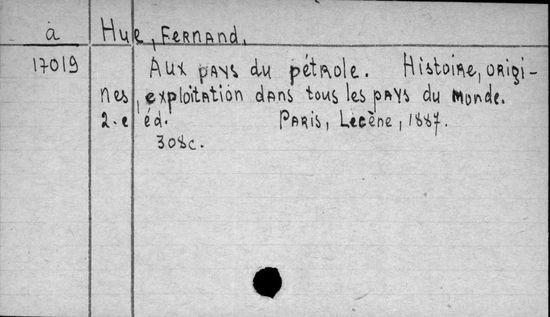 à Hue, Fernand.
17019 Aux pays du pétrole. Histoire, origi-
nes, exploitation dans tous les pays du monde.
2.e éd. Paris, Lecène, 1887.
308c.